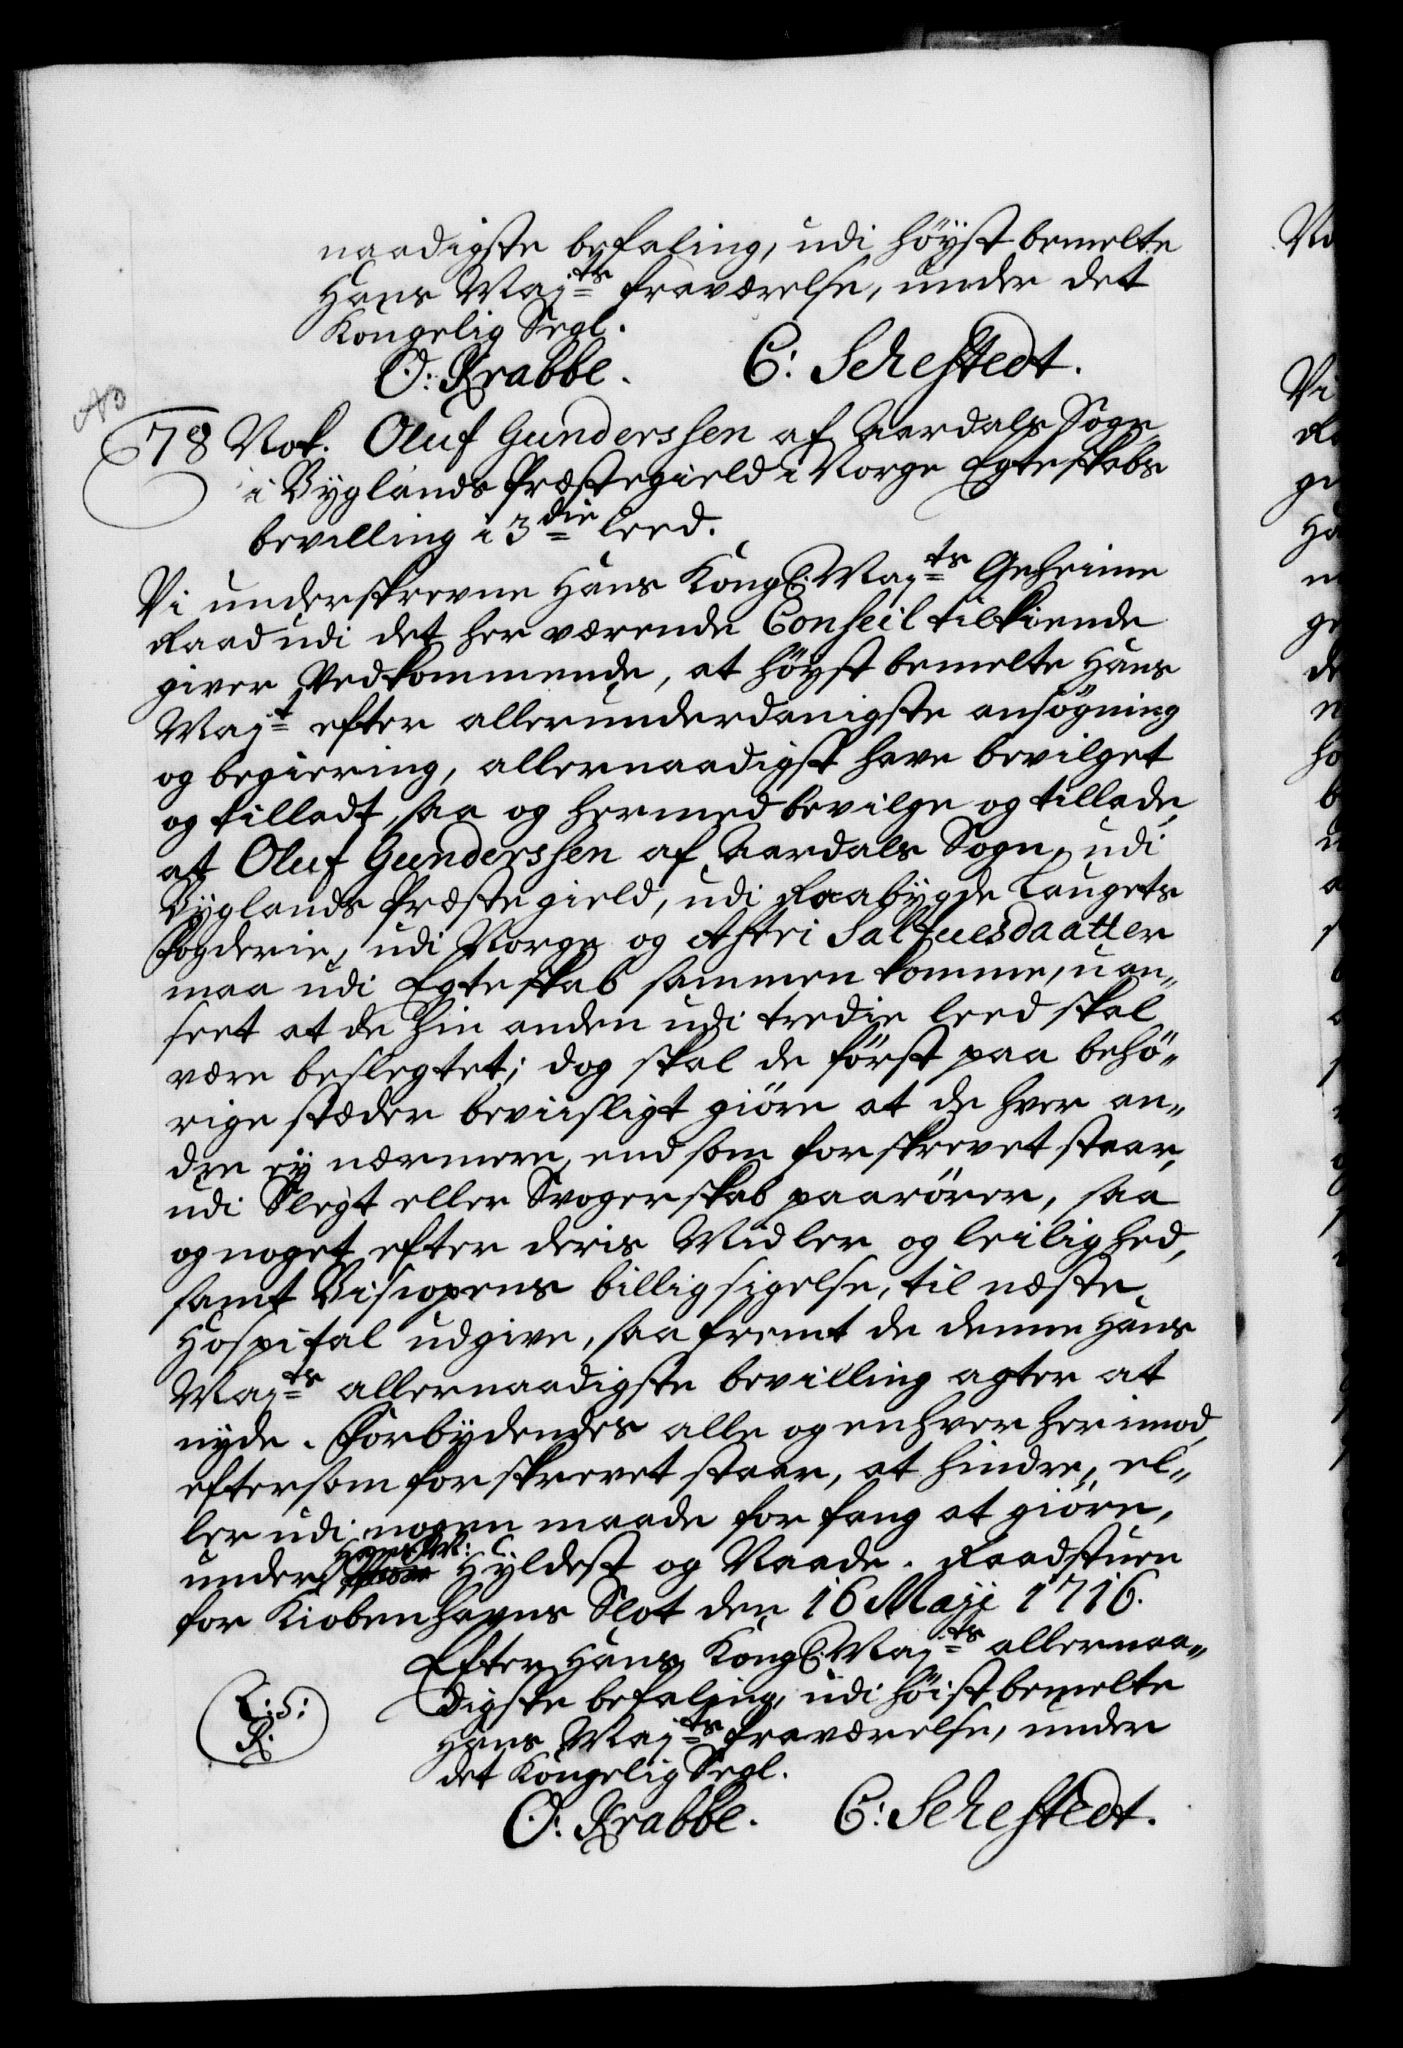 naadigste befaling, udi höyst bemelte
Hans Maj:ts fraværelse, under det
Kongelig Segl.
O: Krabbe. C: Sehestedt.
NB
78 Not. Oluf Gunderssen af Aardals Sogn
i Byglands Præstegield i Norge Egteskabs
bevilling i 3die leed.
Vi underskrevne Hans Kongl. Maj:ts Geheime
Raad udi det her værende Conseil tilkiende
giver Vedkommende, at höyst bemelte Hans
Maj:t efter allerunderdanigste ansögning
og begiering, allernaadigst have bevilget
og tilladt, saa og hermed bevilge og tillade,
at Oluf Gunderssen af Aardals Sogn, udi
Byglands Præstegield, udi Raabygde Laugets
Fogderie, udi Norge og Astri Salfuesdaatter
maa udi Egteskab sammen komme, uan„
seet at de hin anden udi tredie leed skal
være beslegtet; dog skal de först paa behö„
rige stæder beviisligt giöre at de hver an„
dre ey nærmere, end som forskrevet staar,
udi Slegt eller Svogerskab paarörer, saa
og noget efter deris Midler og leilighed,
samt Biscopens billigsigelse, til næste
Hospital udgive, saa fremt de denne Hans
Maj:ts allernaadigste bevilling agter at
nyde. Forbydendes alle og enhver her imod,
eftersom forskrevet staar, at hindre, el„
ler udi nogen maade forfang at giöre,
Hans M:
under Hyldest og Naade. Raadstuen
for Kiøbenhavns Slot den 16 Maji 1716.
Efter Hans Kongl. Maj:ts allernaa„
digste befaling, udi höist bemelte
Hans Maj:ts fraværelse, under
det Kongelig Segl.
L: S:
R.
O: Krabbe. C: Sehestedt.